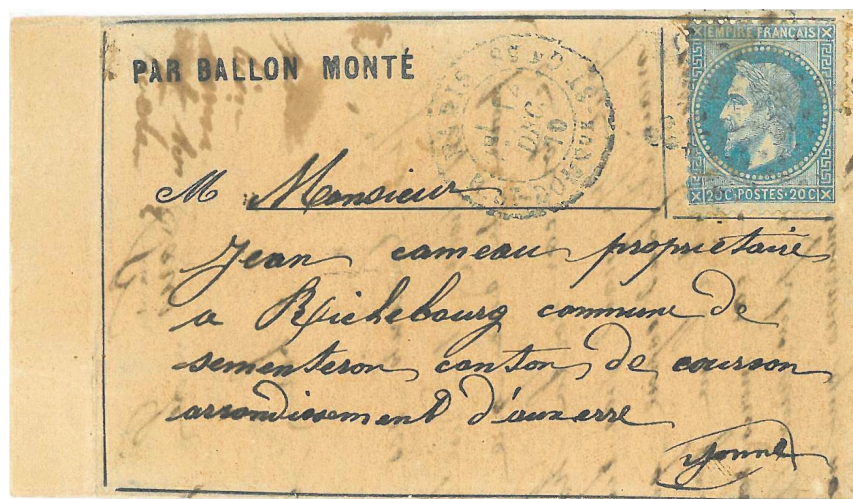 PAR BALLON MONTÉ
EMPIRE FRANÇAIS
20C POSTES 20C
DEC.
M Monsieur
Jean cameau propriétaire
a Richebourg commune de
sementeron canton de courson
arrondissement d'auxerre
Yonne